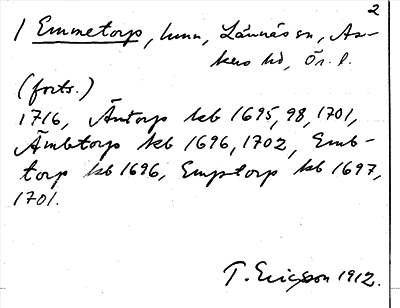 2
1 Emmetorp, hmn, Lännäs sn, As-
kers hd, Ör. l.
(forts.)
1716, Ämtorp kb 1695, 98, 1701,
Ämbtorp kb 1696, 1702, Emb-
torp kb 1696, Empstorp kb 1697,
1701.
T. Ericsson 1912.